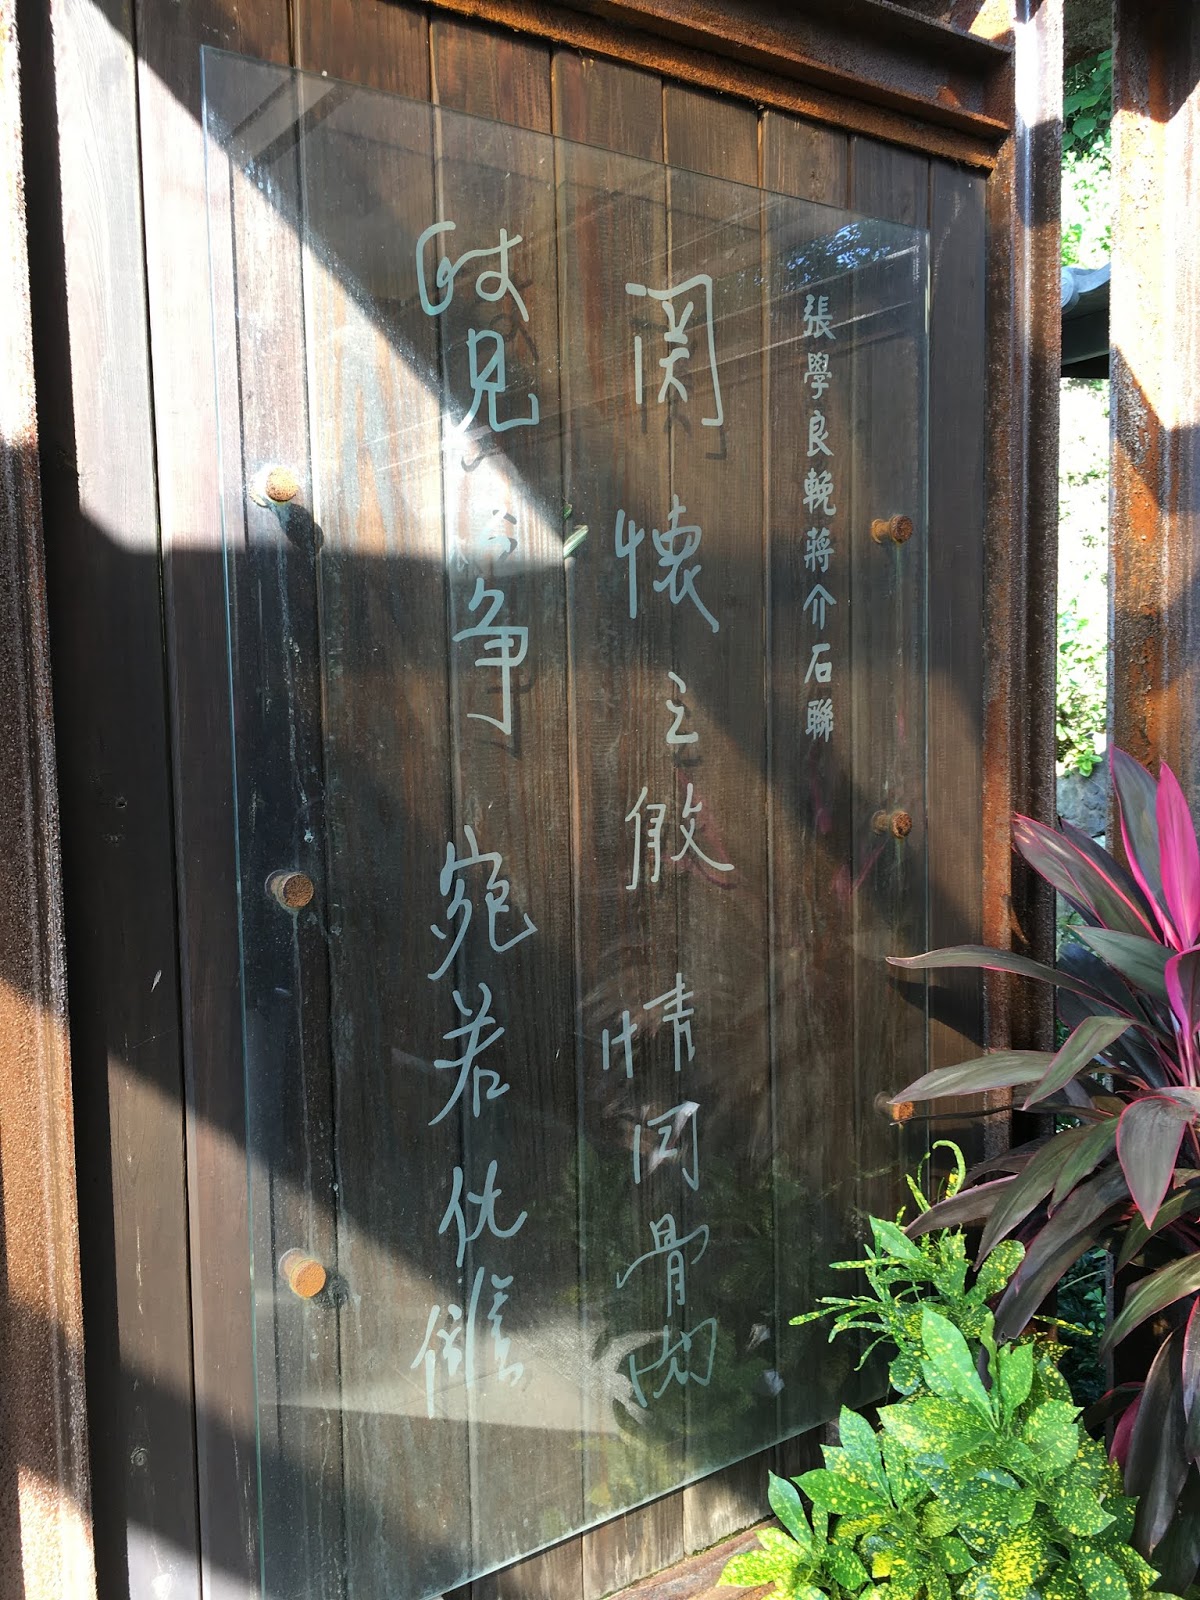 張學良輓蔣介石聯
関懷之殷情同骨肉
政見之争宛若仇讎